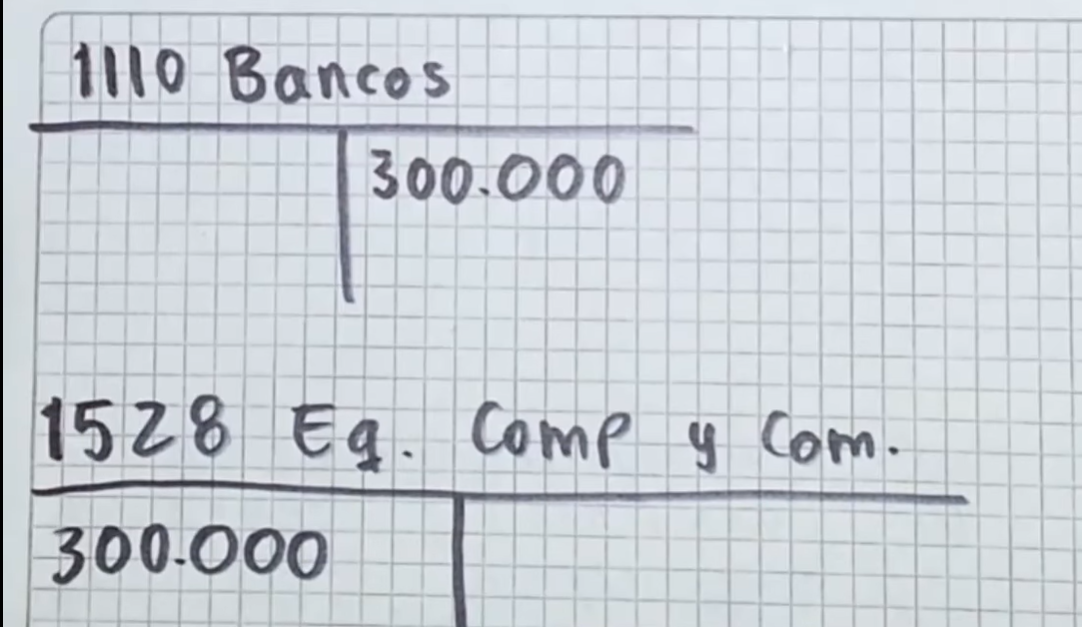 1110 Bancos
300.000
1528 Eq. Comp y Com.
300.000